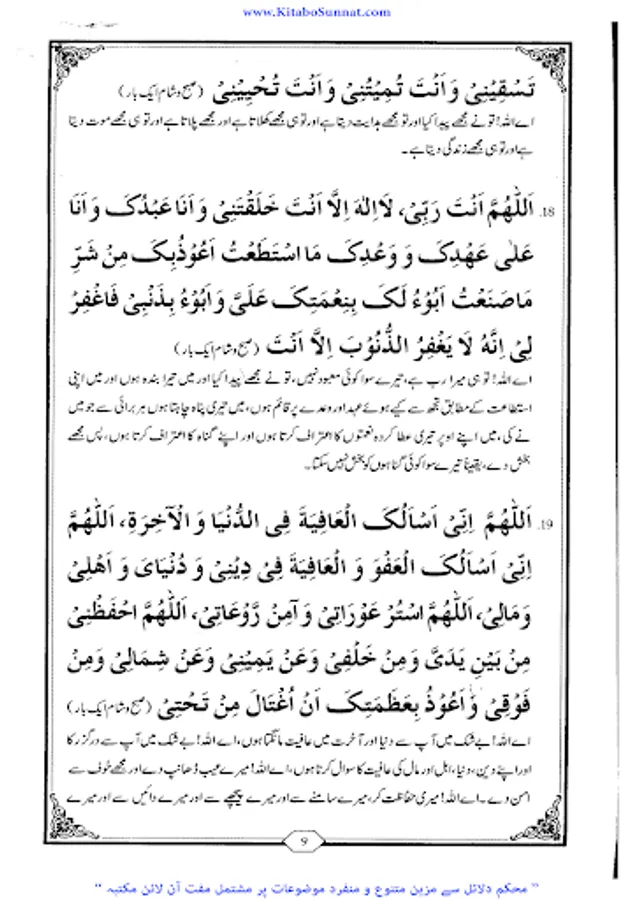 www.KitaboSunnat.com
تَسْقِيْنِىْ وَ اَنْتَ تُمِيْتُنِىْ وَ اَنْتَ تُحْيِيْنِىْ (صبح و شام ایک بار)
اے اللہ! تو نے مجھے پیدا کیا اور تو مجھے ہدایت دیتا ہے اور تو ہی مجھے کھلاتا ہے اور مجھے پلاتا ہے اور تو ہی مجھے موت دیتا
ہے اور تو ہی مجھے زندگی دیتا ہے۔
18. اَللّٰهُمَّ اَنْتَ رَبِّىْ، لَا اِلٰهَ اِلَّا اَنْتَ خَلَقْتَنِىْ وَ اَنَا عَبْدُكَ وَ اَنَا
عَلٰى عَهْدِكَ وَ وَعْدِكَ مَا اسْتَطَعْتُ اَعُوْذُبِكَ مِنْ شَرِّ
مَا صَنَعْتُ اَبُوْءُ لَكَ بِنِعْمَتِكَ عَلَىَّ وَ اَبُوْءُ بِذَنْبِىْ فَاغْفِرْ
لِىْ اِنَّهُ لَا يَغْفِرُ الذُّنُوْبَ اِلَّا اَنْتَ (صبح و شام ایک بار)
اے اللہ! تو ہی میرا رب ہے، تیرے سوا کوئی معبود نہیں، تو نے مجھے پیدا کیا اور میں تیرا بندہ ہوں اور میں اپنی
استطاعت کے مطابق تجھ سے کیے ہوئے عہد اور وعدے پر قائم ہوں، میں تیری پناہ چاہتا ہوں ہر برائی سے جو میں
نے کی، میں اپنے اوپر تیری عطا کردہ نعمتوں کا اعتراف کرتا ہوں اور اپنے گناہ کا اعتراف کرتا ہوں، پس مجھے
بخش دے، یقیناً تیرے سوا کوئی گناہوں کو بخش نہیں سکتا۔
19. اَللّٰهُمَّ اِنِّىْ اَسْاَلُكَ الْعَافِيَةَ فِى الدُّنْيَا وَ الْآخِرَةِ، اَللّٰهُمَّ
اِنِّىْ اَسْاَلُكَ الْعَفْوَ وَ الْعَافِيَةَ فِىْ دِيْنِىْ وَ دُنْيَاىَ وَ اَهْلِىْ
وَ مَالِىْ، اَللّٰهُمَّ اسْتُرْ عَوْرَاتِىْ وَ آمِنْ رَّوْعَاتِىْ، اَللّٰهُمَّ احْفَظْنِىْ
مِنْ بَيْنِ يَدَىَّ وَ مِنْ خَلْفِىْ وَ عَنْ يَمِيْنِىْ وَ عَنْ شِمَالِىْ وَ مِنْ
فَوْقِىْ وَ اَعُوْذُ بِعَظَمَتِكَ اَنْ اُغْتَالَ مِنْ تَحْتِىْ (صبح و شام ایک بار)
اے اللہ! بے شک میں آپ سے دنیا اور آخرت میں عافیت مانگتا ہوں، اے اللہ! بے شک میں آپ سے درگزر کا
اور اپنے دین، دنیا، اہل اور مال کی عافیت کا سوال کرتا ہوں، اے اللہ! میرے عیب ڈھانپ دے اور مجھے خوف سے
امن دے۔ اے اللہ! میری حفاظت کر، میرے سامنے سے اور میرے پیچھے سے اور میرے دائیں سے اور میرے
9
" محکم دلائل سے مزین متنوع و منفرد موضوعات پر مشتمل مفت آن لائن مکتبہ "